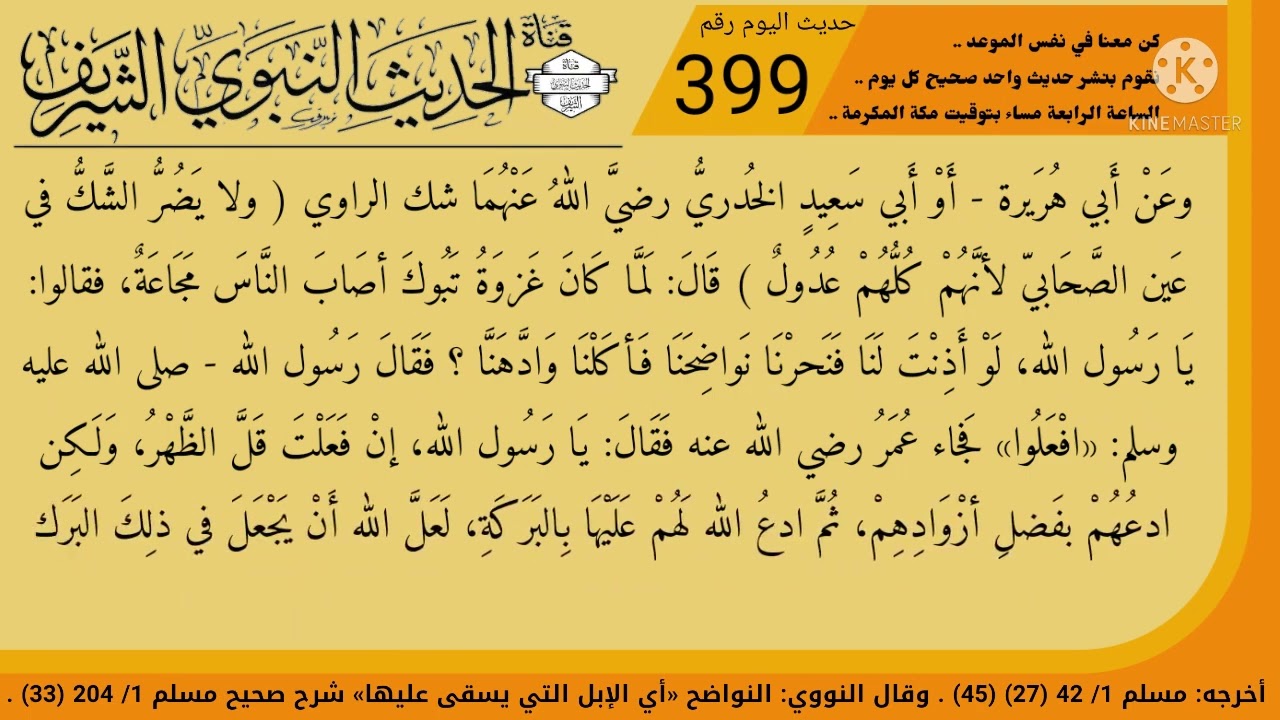 قناة
الحديث النبوي الشريف
قناة
الحديث النبوي
الشريف
حديث اليوم رقم
399
كن معنا في نفس الموعد ..
نقوم بنشر حديث واحد صحيح كل يوم ..
الساعة الرابعة مساء بتوقيت مكة المكرمة ..
KINEMASTER
وعَنْ أَبي هُرَيرة - أَوْ أَبي سَعِيدٍ الخُدريُّ رضيَّ اللهُ عَنْهُمَا شك الراوي ( ولا يَضُرُّ الشَّكُّ في
عَين الصَّحَابيّ لأنَّهُمْ كُلُّهُمْ عُدُولٌ ) قَالَ: لَمَّا كَانَ غَزوَةُ تَبُوكَ أصَابَ النَّاسَ مَجَاعَةٌ، فقالوا:
يَا رَسُول الله، لَوْ أَذِنْتَ لَنَا فَنَحرْنَا نَواضِحَنَا فَأكَلْنَا وَادَّهَنَّا ؟ فَقَالَ رَسُول الله - صلى الله عليه
وسلم: «افْعَلُوا» فَجاء عُمَرُ رضي الله عنه فَقَالَ: يَا رَسُول الله، إنْ فَعَلْتَ قَلَّ الظَّهْرُ، وَلَكِن
ادعُهُمْ بفَضلِ أزْوَادِهِمْ، ثُمَّ ادعُ الله لَهُمْ عَلَيْهَا بِالبَرَكَةِ، لَعَلَّ الله أَنْ يَجْعَلَ في ذلِكَ البَرَك
أخرجه: مسلم 1/ 42 (27) (45) . وقال النووي: النواضح «أي الإبل التي يسقى عليها» شرح صحيح مسلم 1/ 204 (33) .